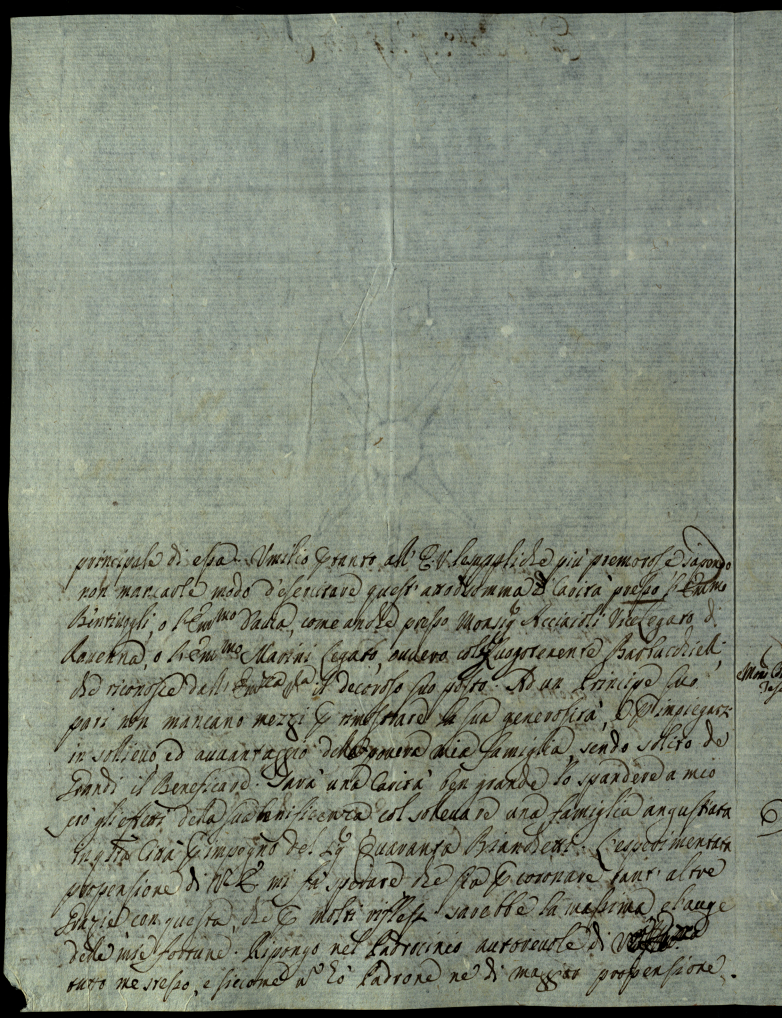 principale di essa. Umilio ptanto all' E.V. le suppliche più premorose sapendo
non mancarle modo d'esercitare quest' atto di somma Carità presso l'Emmo
Bentivogli, o l'Emmo Dada, come anche presso Monsigr Acciaroli Vice Legato di
Ravenna, o l'Emmo Marini Legato, ovvero col Luogotenente Barbacchielli
che riconosce dall' il decoroso suo posto. Ad un Principe suo
pari non mancano mezzi p rimostrare la sua generosità, e p impiegarsi
in sollievo ed avvantaggio della povera mia famiglia, sendo solito de
Grandi il Beneficare. Sarà una Carità ben grande lo spandere a mio
prò gli effetti della sua benificenza col sollevare una famiglia angustiata
in qsta Città p impegno del Sigr Quaranta Bianchetti. L'esperimentata
propensione di V.E. mi fà sperare che sia p coronare tant' altre
Grazie con questa, che p molti riflessi sarebbe la massima, e l'auge
delle mie fortune. Ripongo nel Padrocineo autorevole di
tutto me stesso, e siccome nō hò Padrone ne di maggior propensione,